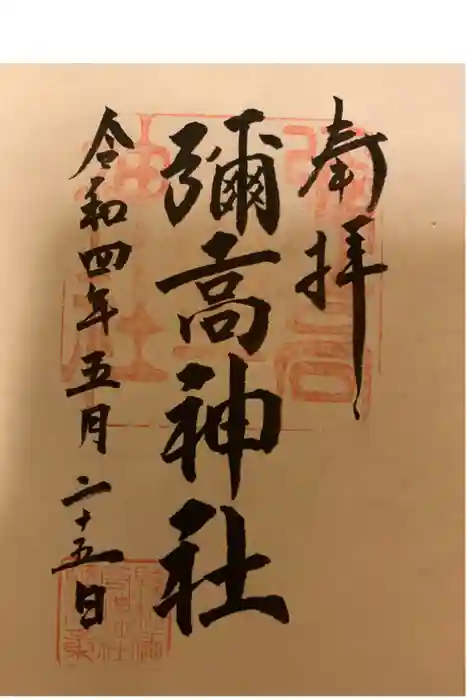 奉拝
彌高神社
令和四年五月二十五日
彌高神社